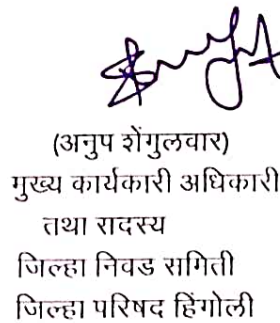 (अनुप शेंगुलवार)
मुख्य कार्यकारी अधिकारी
तथा रादस्य
जिल्हा निवड सगिती
जिल्हा परिषद हिंगोली